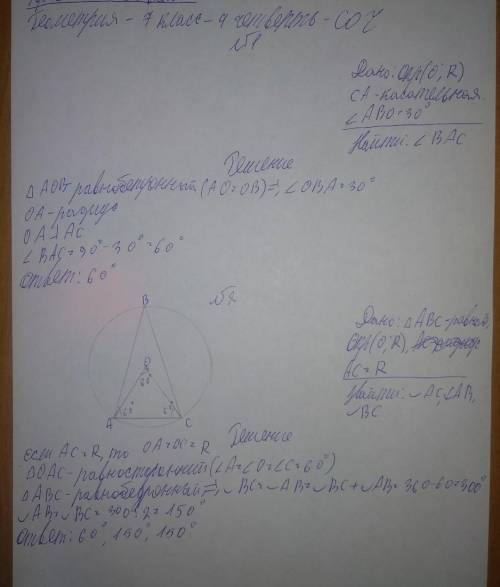 Геометрия - 7 класс - 4 четверть - СОЧ
№1
Дано: окр(O; R)
CA - касательная
∠ABO = 30°
Найти: ∠BAC
Решение
△AOB равнобедренный (AO = OB) ⇒ ∠OBA = 30°
OA - радиус
OA ⊥ AC
∠BAC = 90° - 30° = 60°
Ответ: 60°
№2
Дано: △ABC - равноб.
Окр(O; R),
AC = R
Найти: ◡AC, ◡AB,
◡BC
B
O
60°
60°
60°
A
C
Решение
если AC = R, то OA = OC = R
△OAC - равносторонний (∠A = ∠O = ∠C = 60°)
△ABC - равнобедренный ⇒ ◡BC = ◡AB = ◡BC + ◡AB = 360 - 60 = 300°
◡AB = ◡BC = 300 : 2 = 150°
Ответ: 60°, 150°, 150°